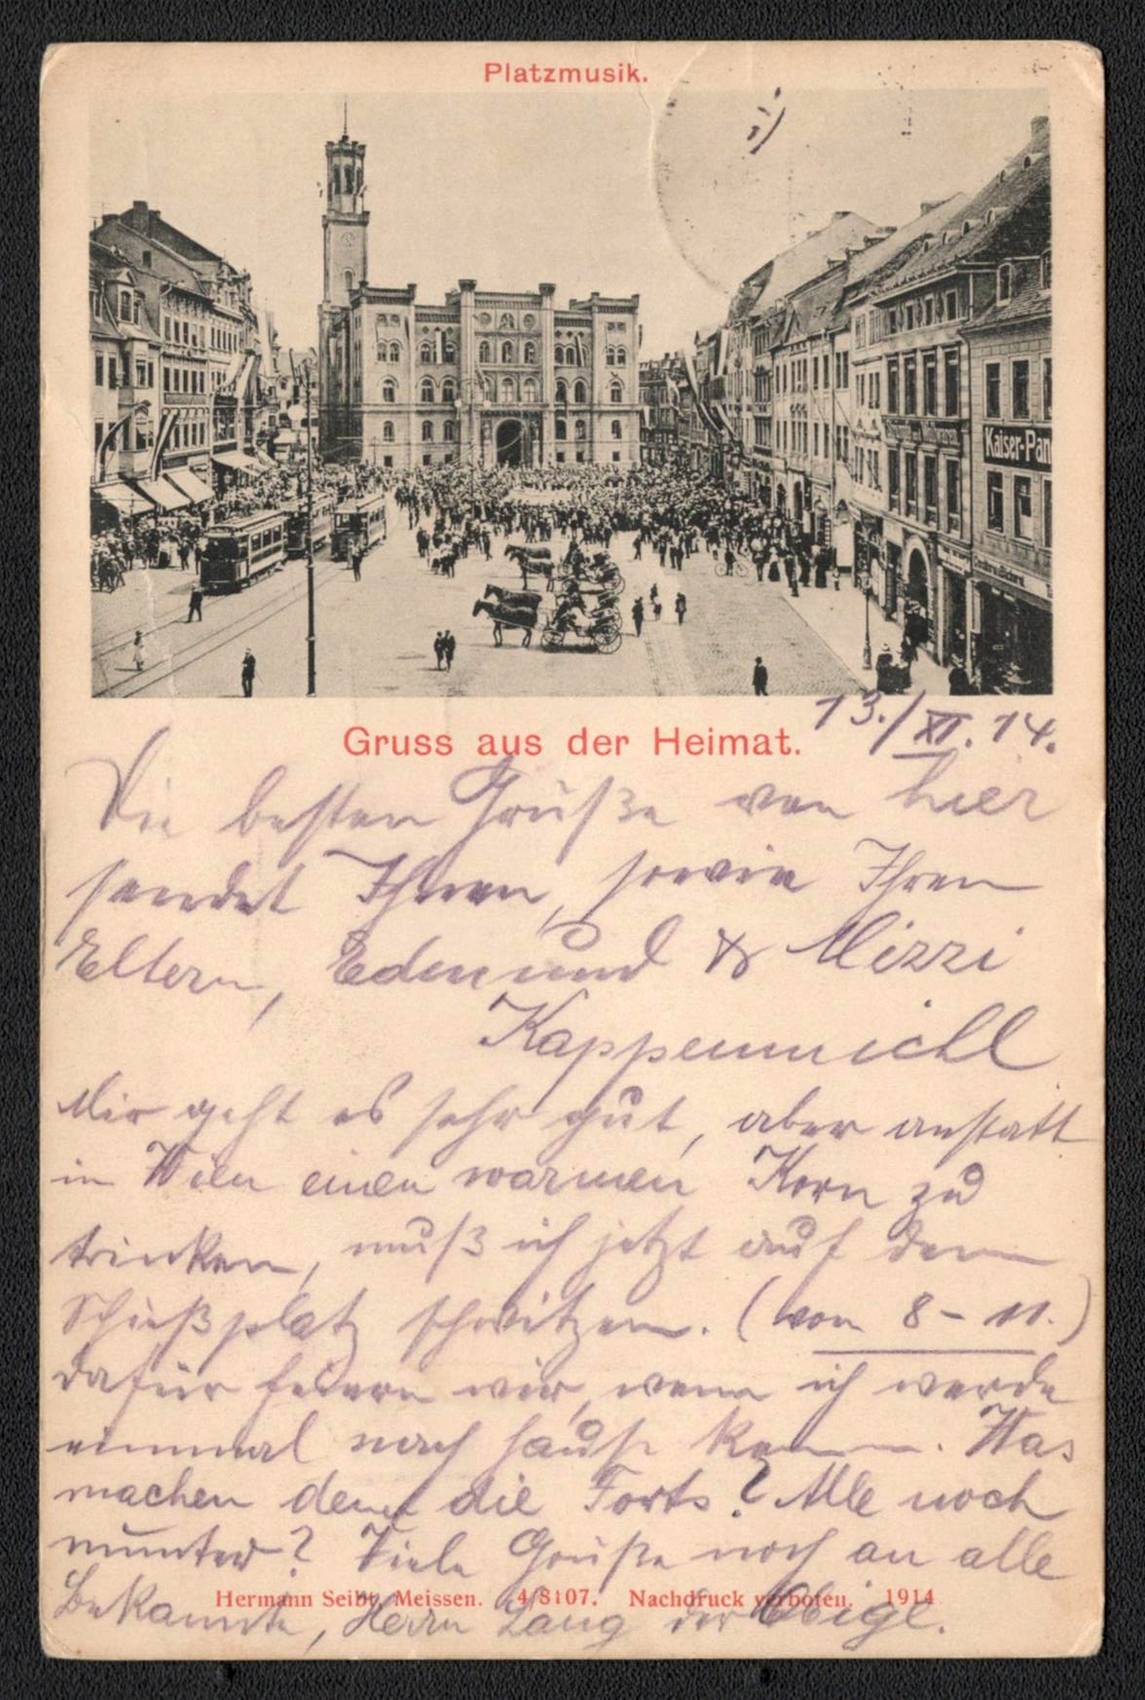 Platzmusik.
Kaiser-Pan
Gruss aus der Heimat.
13./XI.14.
Die besten Grüße von hier
sendet Ihnen, sowie Ihren
Eltern, Edmund & Mizzi
Kappenmichl
Mir geht es sehr gut, aber anstatt
in Wien einen warmen Korn zu
trinken, muß ich jetzt auf dem
Schießplatz schwitzen. (von 8 - 11.)
dafür feiern wir, wenn ich werde
einmal nach Hause kommen. Was
machen denn die Forts? Alle noch
munter? Viele Grüße noch an alle
Bekannte, Herrn Lang der Obige.
Hermann Seibt, Meissen. 4/8107. Nachdruck verboten. 1914